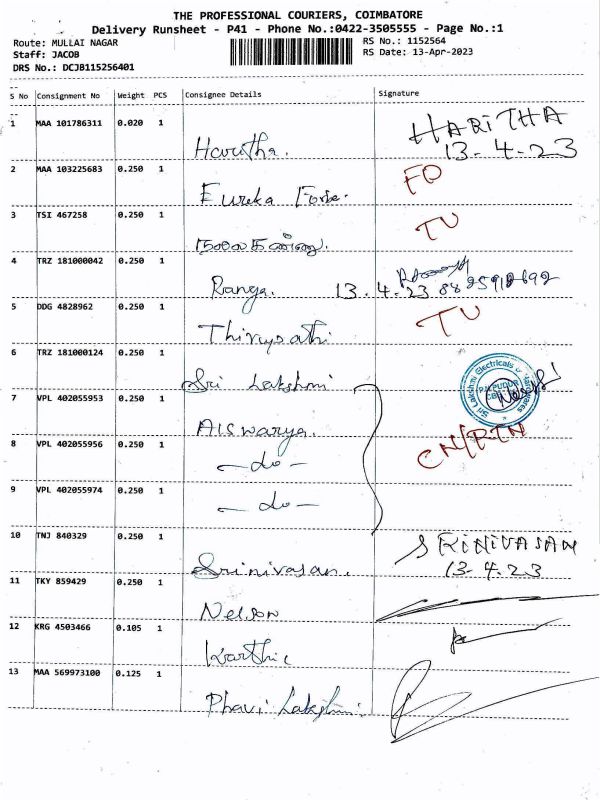 THE PROFESSIONAL COURIERS, COIMBATORE
Delivery Runsheet - P41 - Phone No.:0422-3505555 - Page No.:1
Route: MULLAI NAGAR RS No.: 1152564
Staff: JACOB RS Date: 13-Apr-2023
DRS No.: DCJB115256401
S No Consignment No Weight PCS Consignee Details Signature
1 MAA 101786311 0.020 1 Haritha. HARITHA
13-4-23
2 MAA 103225683 0.250 1 Eureka Forbe. FO
3 TSI 467258 0.250 1 TU
4 TRZ 181000042 0.250 1 Ranga. 13.4.23
5 DDG 4828962 0.250 1 Thirupathi TU
6 TRZ 181000124 0.250 1 Sri Lakshmi
Sri Lakshmi Electricals
7 VPL 402055953 0.250 1 Aiswarya.
8 VPL 402055956 0.250 1 -do- CN/RTN
9 VPL 402055974 0.250 1 -do-
10 TNJ 840329 0.250 1 Srinivasan. SRINIVASAN
13.4.23
11 TKY 859429 0.250 1 Nelson
12 KRG 4503466 0.105 1 Karthic
13 MAA 569973100 0.125 1 Phavi Lakshmi.